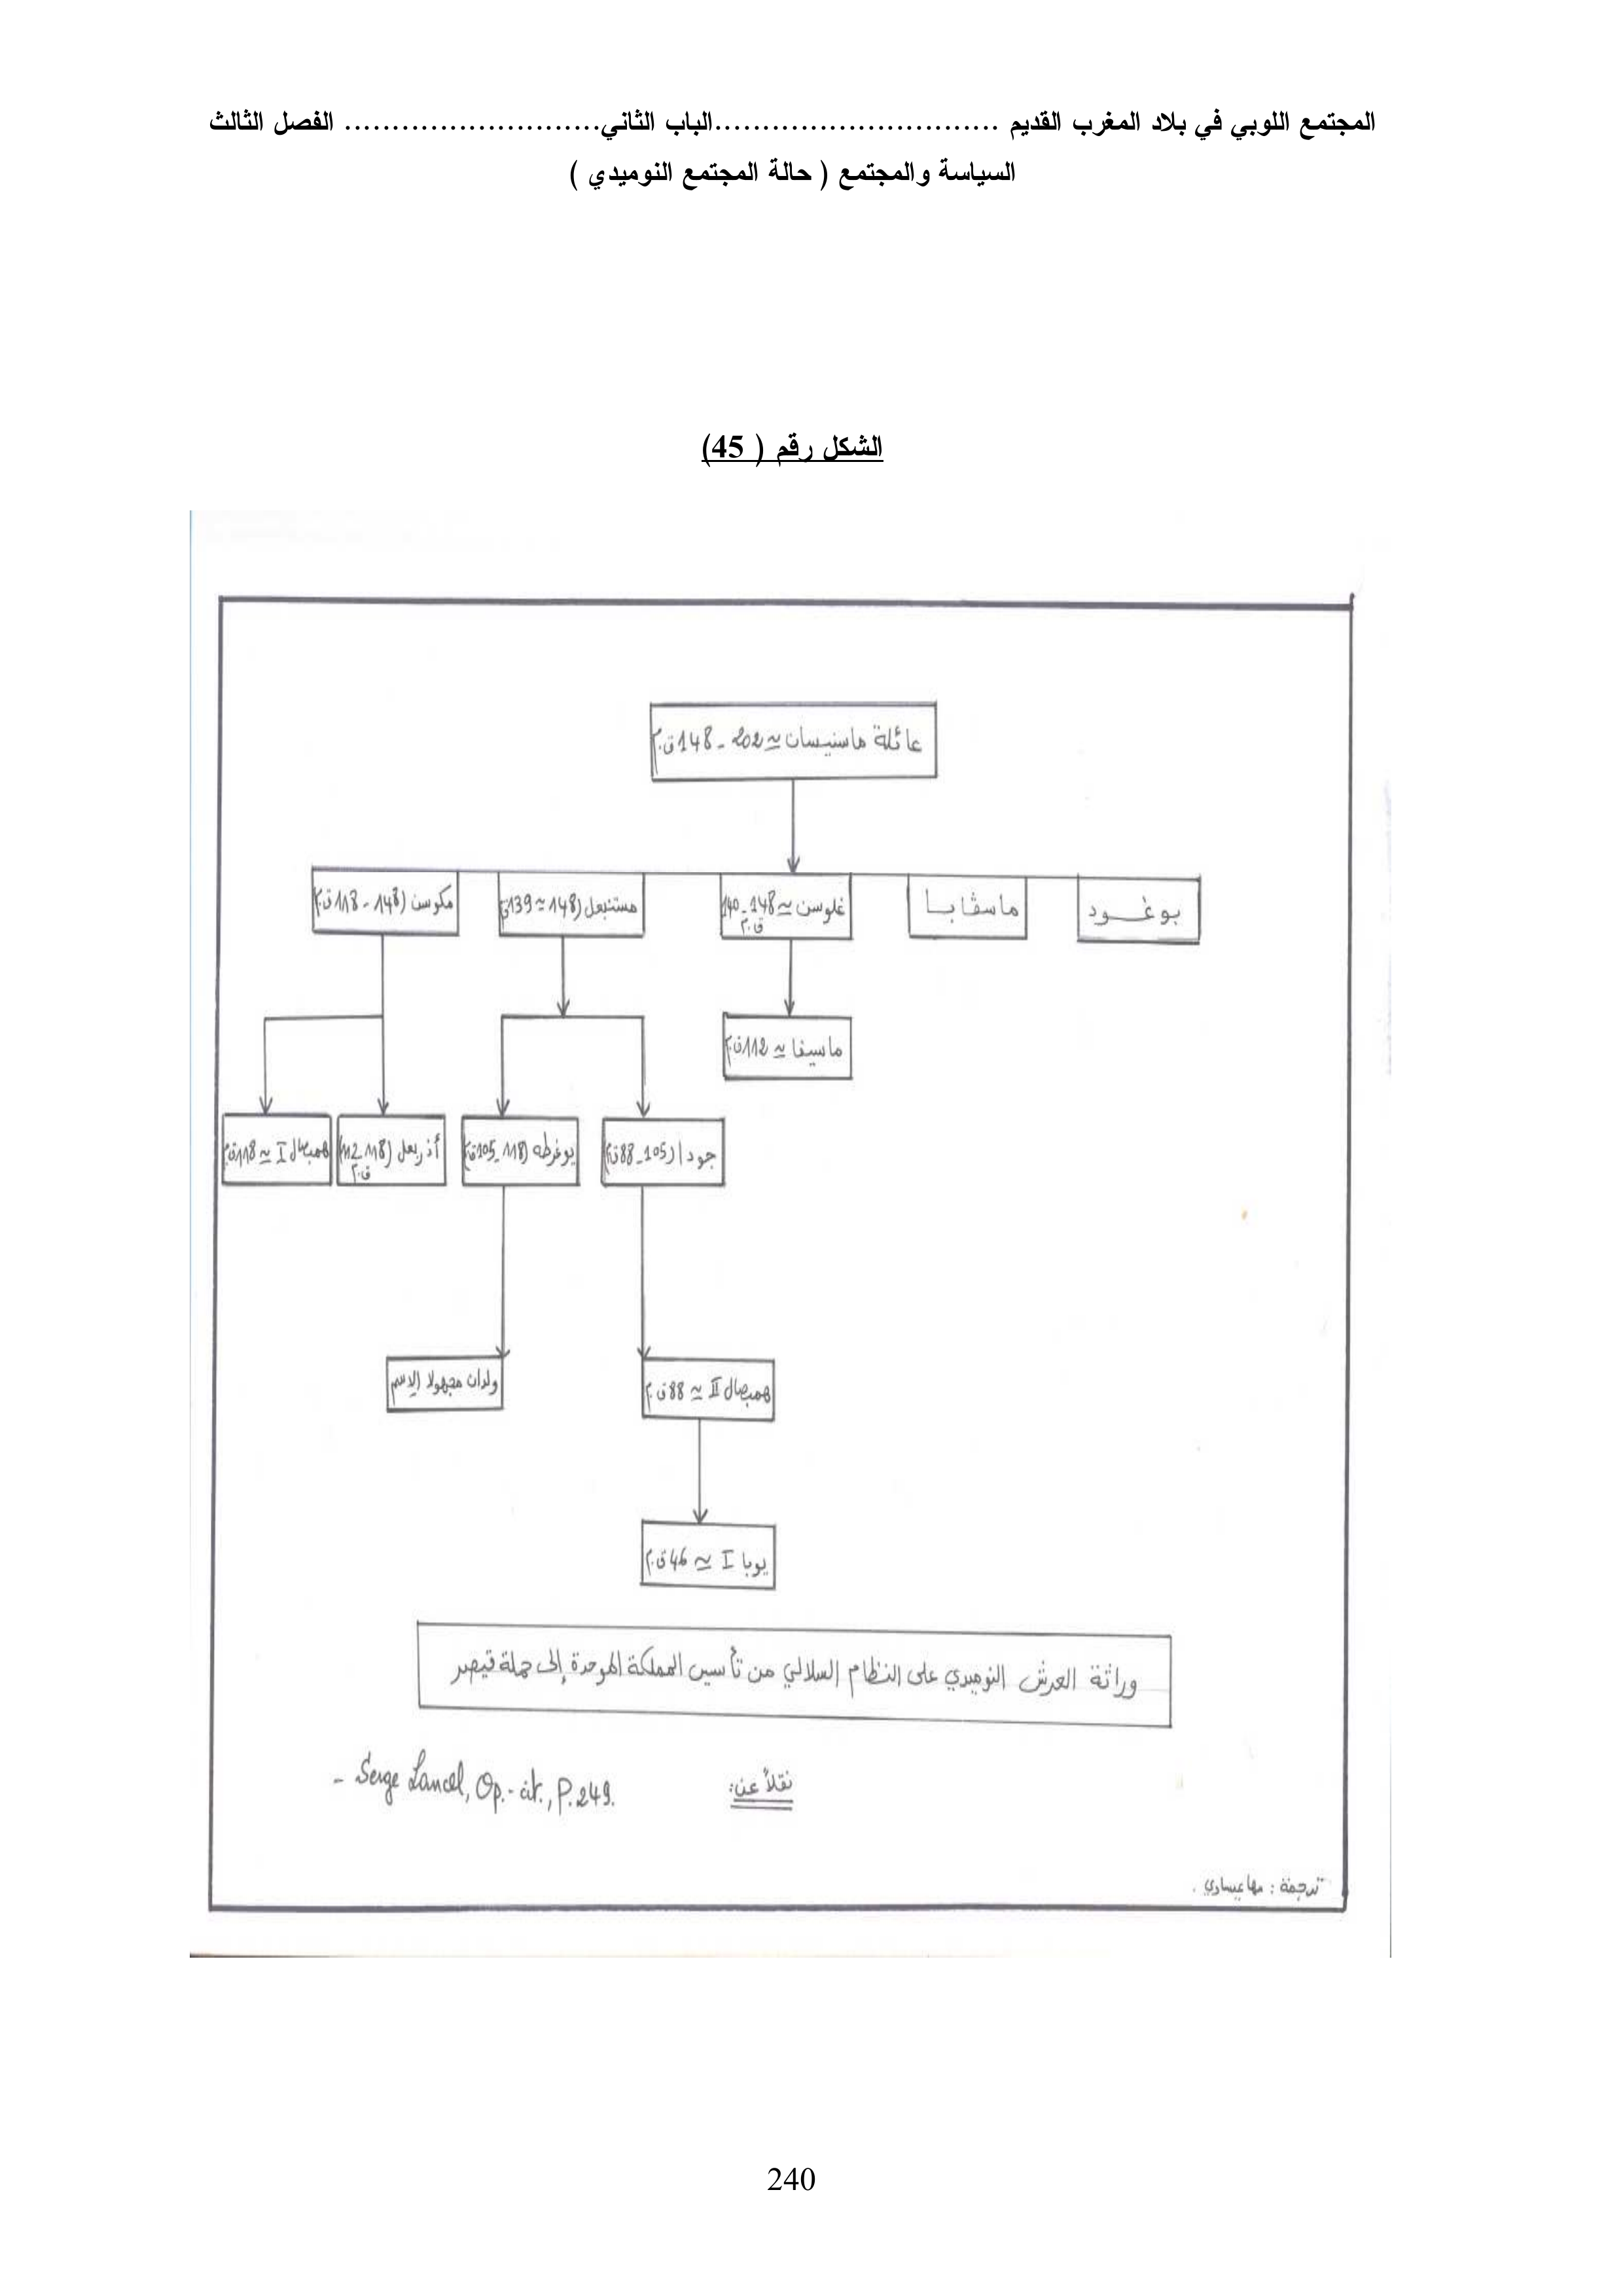 المجتمع اللوبي في بلاد المغرب القديم ..............................الباب الثاني........................... الفصل الثالث
السياسة والمجتمع ( حالة المجتمع النوميدي )
الشكل رقم ( 45)
عائلة ماسنيسان ≃ 202 - 148 ق.م
بوغود
ماسڤابا
غلوسن ≃ 148 - 140 ق.م
مستنبعل (148 ≃ 139 ق
مكوسن (148 - 118 ق.م
ماسيفا ≃ 112 ق.م
جودا (105 - 88 ق.م)
يوغرطه (118 - 105 ق.م)
أذربعل (118 - 112) ق.م
همبصال I ≃ 118 ق.م
همبصال II ≃ 88 ق.م
ولدان مجهولا الإسم
يوبا I ≃ 46 ق.م
وراثة العرش النوميدي على النظام السلالي من تأسيس المملكة الموحدة إلى حملة قيصر
نقلاً عن:
- Serge Lancel, Op.- cit., P.249.
ترجمة : مها عيساوي .
240